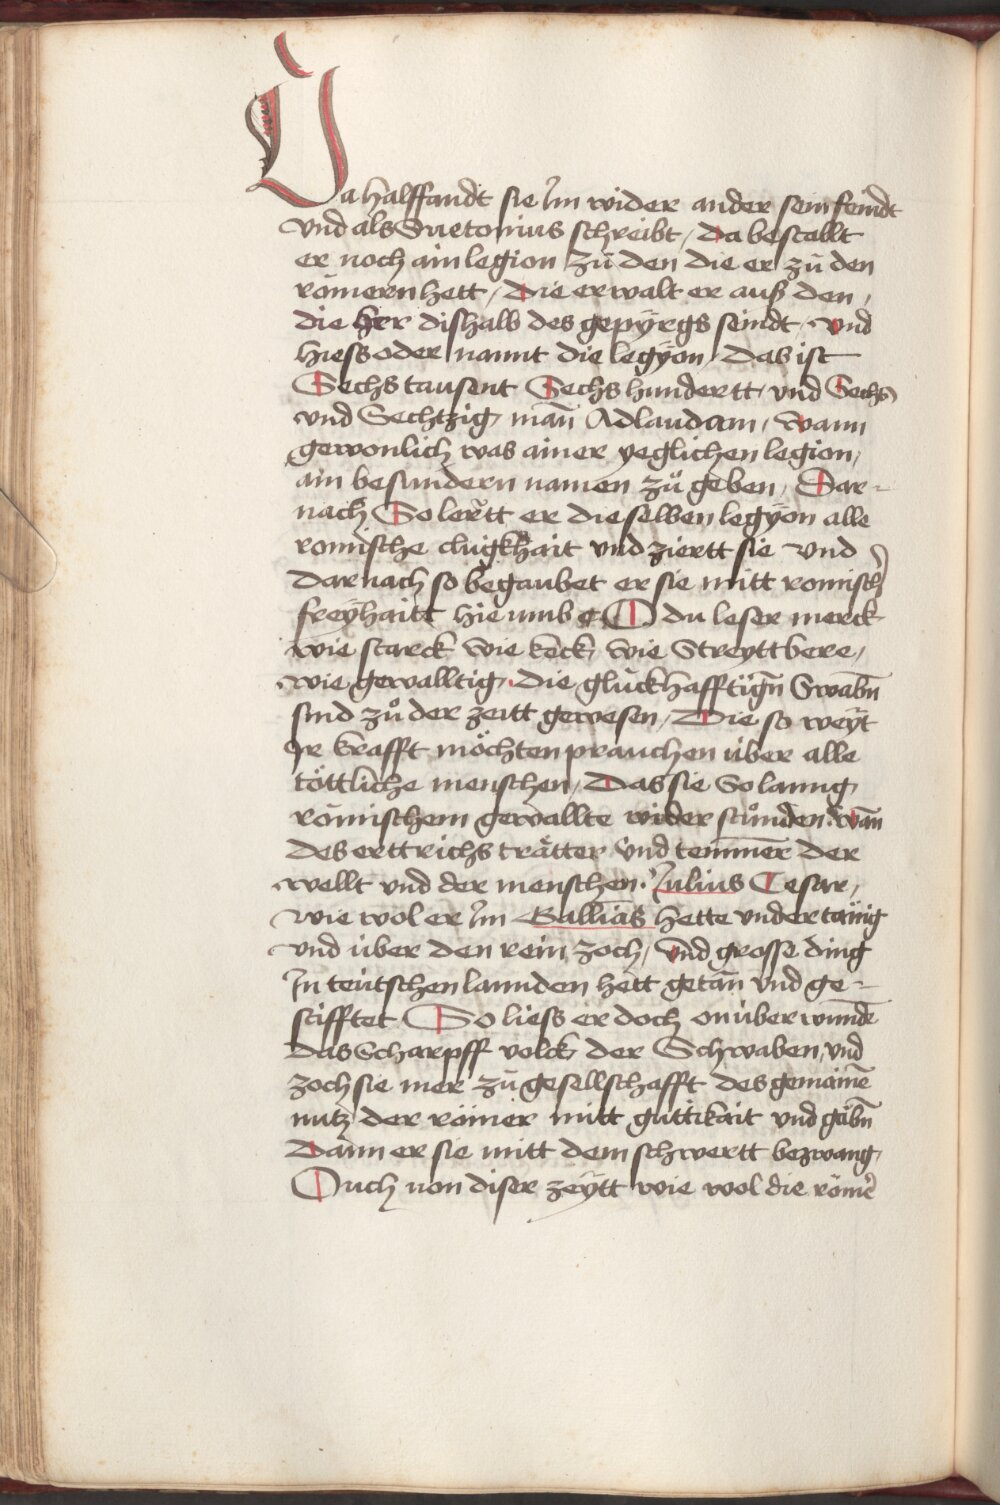 Da halffandt sie Im wider ander sein feindt
Vnd als Suetonius schreibt / Da bestallt
er noch ain legion zů den die er zů den
römern hett / Die erwalt er auß den /
die her dishalb des gepÿrgs seindt / vnd
hiess oder nannt die legÿon / Das ist
Sechs tausent Sechs hundertt / vnd Sechs
vnd Sechtzig / mañ Adlaudam / Wann
gewonlich was ainer yeglichen legion /
ain besundern namen zů geben / Dar-
nach So lerňtt er die selben legÿon alle
romische clugkhait vnd ziertt sie vnd
darnach so begaubet er sie mitt romisch
freÿhaitt hie umb O du leser merck
wie starck wie keck / wie Streyttbere /
wie gewalltig / die glückhafftign̄ Swabn̄
sind zů der zeitt gewesen / Die so weÿt
Ir krafft möchten prauchen über alle
töttliche menschen / Das sie So lanng
römischem gewallte wider stůnden / Wañ
des erttrichs trätter vnd temmer der
wellt vnd der menschen / Julius Cesar /
wie wol er Im Gallias hette vndertänig
vnd über den rein zoch / Vnd grosse ding
In teütschen lannden hett getan̄ vnd ge-
stifftet So liess er doch onüberwunnde
das Scharpff volck der Schwaben / vnd
zoch sie mer zů gesellschafft des gemaine
nutz der römer mitt güttikait vnd gäbn̄
Dann er sie mitt dem schwertt bezwang /
Ouch uon diser zeÿtt wie wol die röme